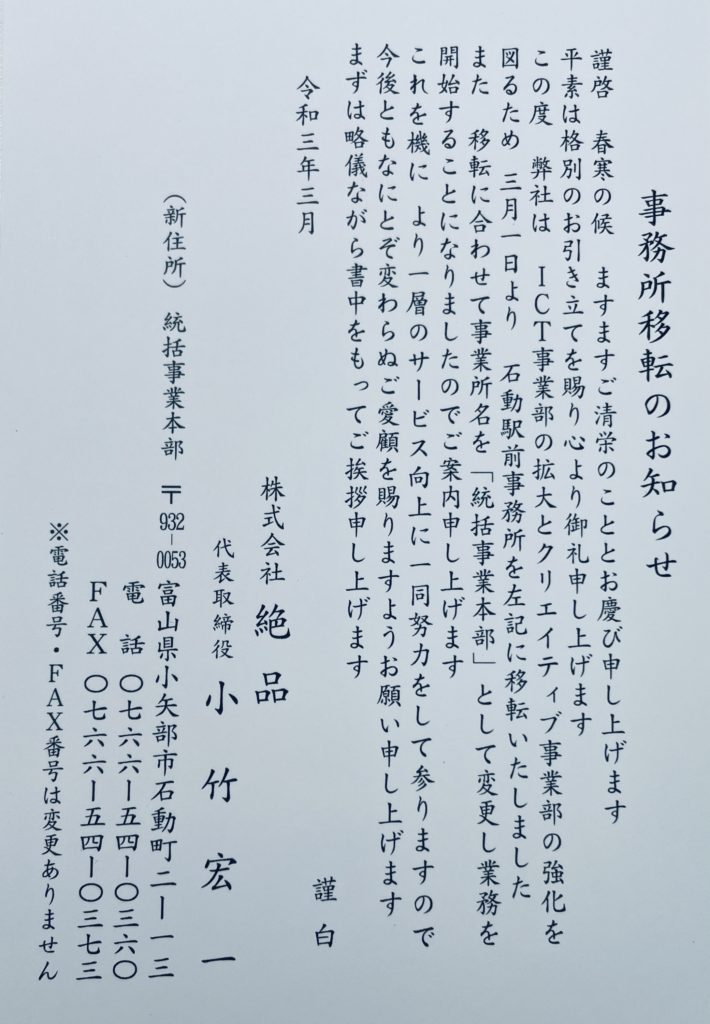 事務所移転のお知らせ
謹啓　春寒の候　ますますご清栄のこととお慶び申し上げます
平素は格別のお引き立てを賜り心より御礼申し上げます
この度　弊社は　ICT事業部の拡大とクリエイティブ事業部の強化を
図るため　三月一日より　石動駅前事務所を左記に移転いたしました
また　移転に合わせて事業所名を「統括事業本部」として変更し業務を
開始することになりましたのでご案内申し上げます
これを機に　より一層のサービス向上に一同努力をして参りますので
今後ともなにとぞ変わらぬご愛顧を賜りますようお願い申し上げます
まずは略儀ながら書中をもってご挨拶申し上げます
謹白
令和三年三月
株式会社 絶品
代表取締役 小竹宏一
（新住所）　統括事業本部　〒932-0053 富山県小矢部市石動町二ー一三
電話 〇七六六ー五四ー〇三六〇
FAX 〇七六六ー五四ー〇三七三
※電話番号・FAX番号は変更ありません